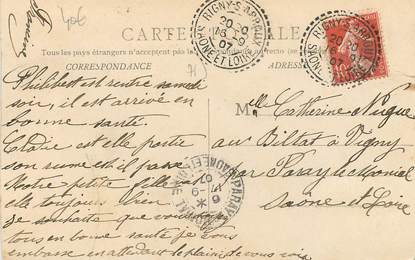 40€
CARTE POSTALE
Tous les pays étrangers n'acceptent pas la
au recto, se
CORRESPONDANCE
71
ADRESSE
RIGNY-S-ARROUX
20-20
16-9
07
SAONE ET LOIRE
Philibert est rentré samedi
soir, il est arrivé en
bonne santé.
est elle partie
son et il passe
Notre petite fille va t
elle toujours bien.
Je souhaite que vous
tous en bonne santé je vous
embrasse en attendant le plaisir de vous voir
Melle Catherine Nugue
au à Vigny
par Paray le monial
Saone et Loire
PARAY-LE-MONIAL
17-9
07
SAONE ET LOIRE